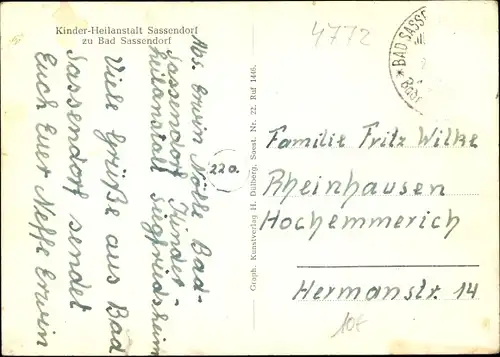 Kinder-Heilanstalt Sassendorf
zu Bad Sassendorf
Abs. Erwin Nölle Bad-
Sassendorf Kinder-
heilanstalt Siegfriedsheim
Viele Grüße aus Bad
Sassendorf sendet
Euch Euer Neffe Erwin
22a
Graph. Kunstverlag H. Dülberg, Soest. Nr. 22. Ruf 1446.
4772
* BAD SASSE
Familie Fritz Wilke
Rheinhausen
Hochemmerich
Hermanstr. 14
10€